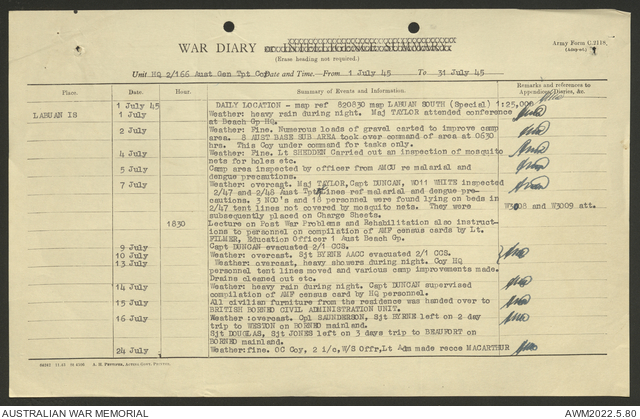 WAR DIARY or INTELLIGENCE SUMMARY
Army Form C.2118.
(Erase heading not required.)
Unit HQ 2/166 Aust Gen Tpt Coy Date and Time.— From 1 July 45 To 31 July 45
Place. Date. Hour. Summary of Events and Information. Remarks and references to Appendices, Diaries, &c.
1 July 45 DAILY LOCATION - map ref 820830 map LABUAN SOUTH (Special) 1:25,000
LABUAN IS 1 July Weather: heavy rain during night. Maj TAYLOR attended conference
at Beach Gp HQ.
2 July Weather: Fine. Numerous loads of gravel carted to improve camp
area. 8 AUST BASE SUB AREA took over command of area at 0630
hrs. This Coy under command for tasks only.
4 July Weather: Fine. Lt SHEDDEN Carried out an inspection of mosquito
nets for holes etc.
5 July Camp area inspected by officer from AMCU re malarial and
dengue precautions.
7 July Weather: overcast. Maj TAYLOR, Capt DUNCAN, WO11 WHITE inspected
2/47 and 2/48 Aust Tpt Lines ref malarial and dengue pre-
cautions. 3 NCO's and 18 personnel were found lying on beds in
2/47 tent lines not covered by mosquito nets. They were
subsequently placed on Charge Sheets. W3008 and W3009 att.
1830 Lecture on Post War Problems and Rehabilitation also instruct-
ions to personnel on compilation of AMF census cards by Lt.
FILMER, Education Officer 1 Aust Beach Gp.
9 July Capt DUNCAN evacuated 2/1 CCS.
10 July Weather: overcast. Sjt BYRNE AACC evacuated 2/1 CCS.
13 July Weather: overcast, heavy showers during night. Coy HQ
personnel tent lines moved and various camp improvements made.
Drains cleaned out etc.
14 July Weather: heavy rain during night. Capt DUNCAN supervised
compilation of AMF census card by HQ personnel.
15 July All civilian furniture from the residence was handed over to
BRITISH BORNEO CIVIL ADMINISTRATION UNIT.
16 July Weather :overcast. Cpl SAUNDERSON, Sjt BYRNE left on 2 day
trip to WESTON on BORNEO mainland.
Sjt DOUGLAS, Sjt JONES left on 3 days trip to BEAUFORT on
BORNEO mainland.
24 July Weather:fine. OC Coy, 2 i/c, W/S Offr, Lt Adm made recce MACARTHUR
AUSTRALIAN WAR MEMORIAL
AWM2022.5.80